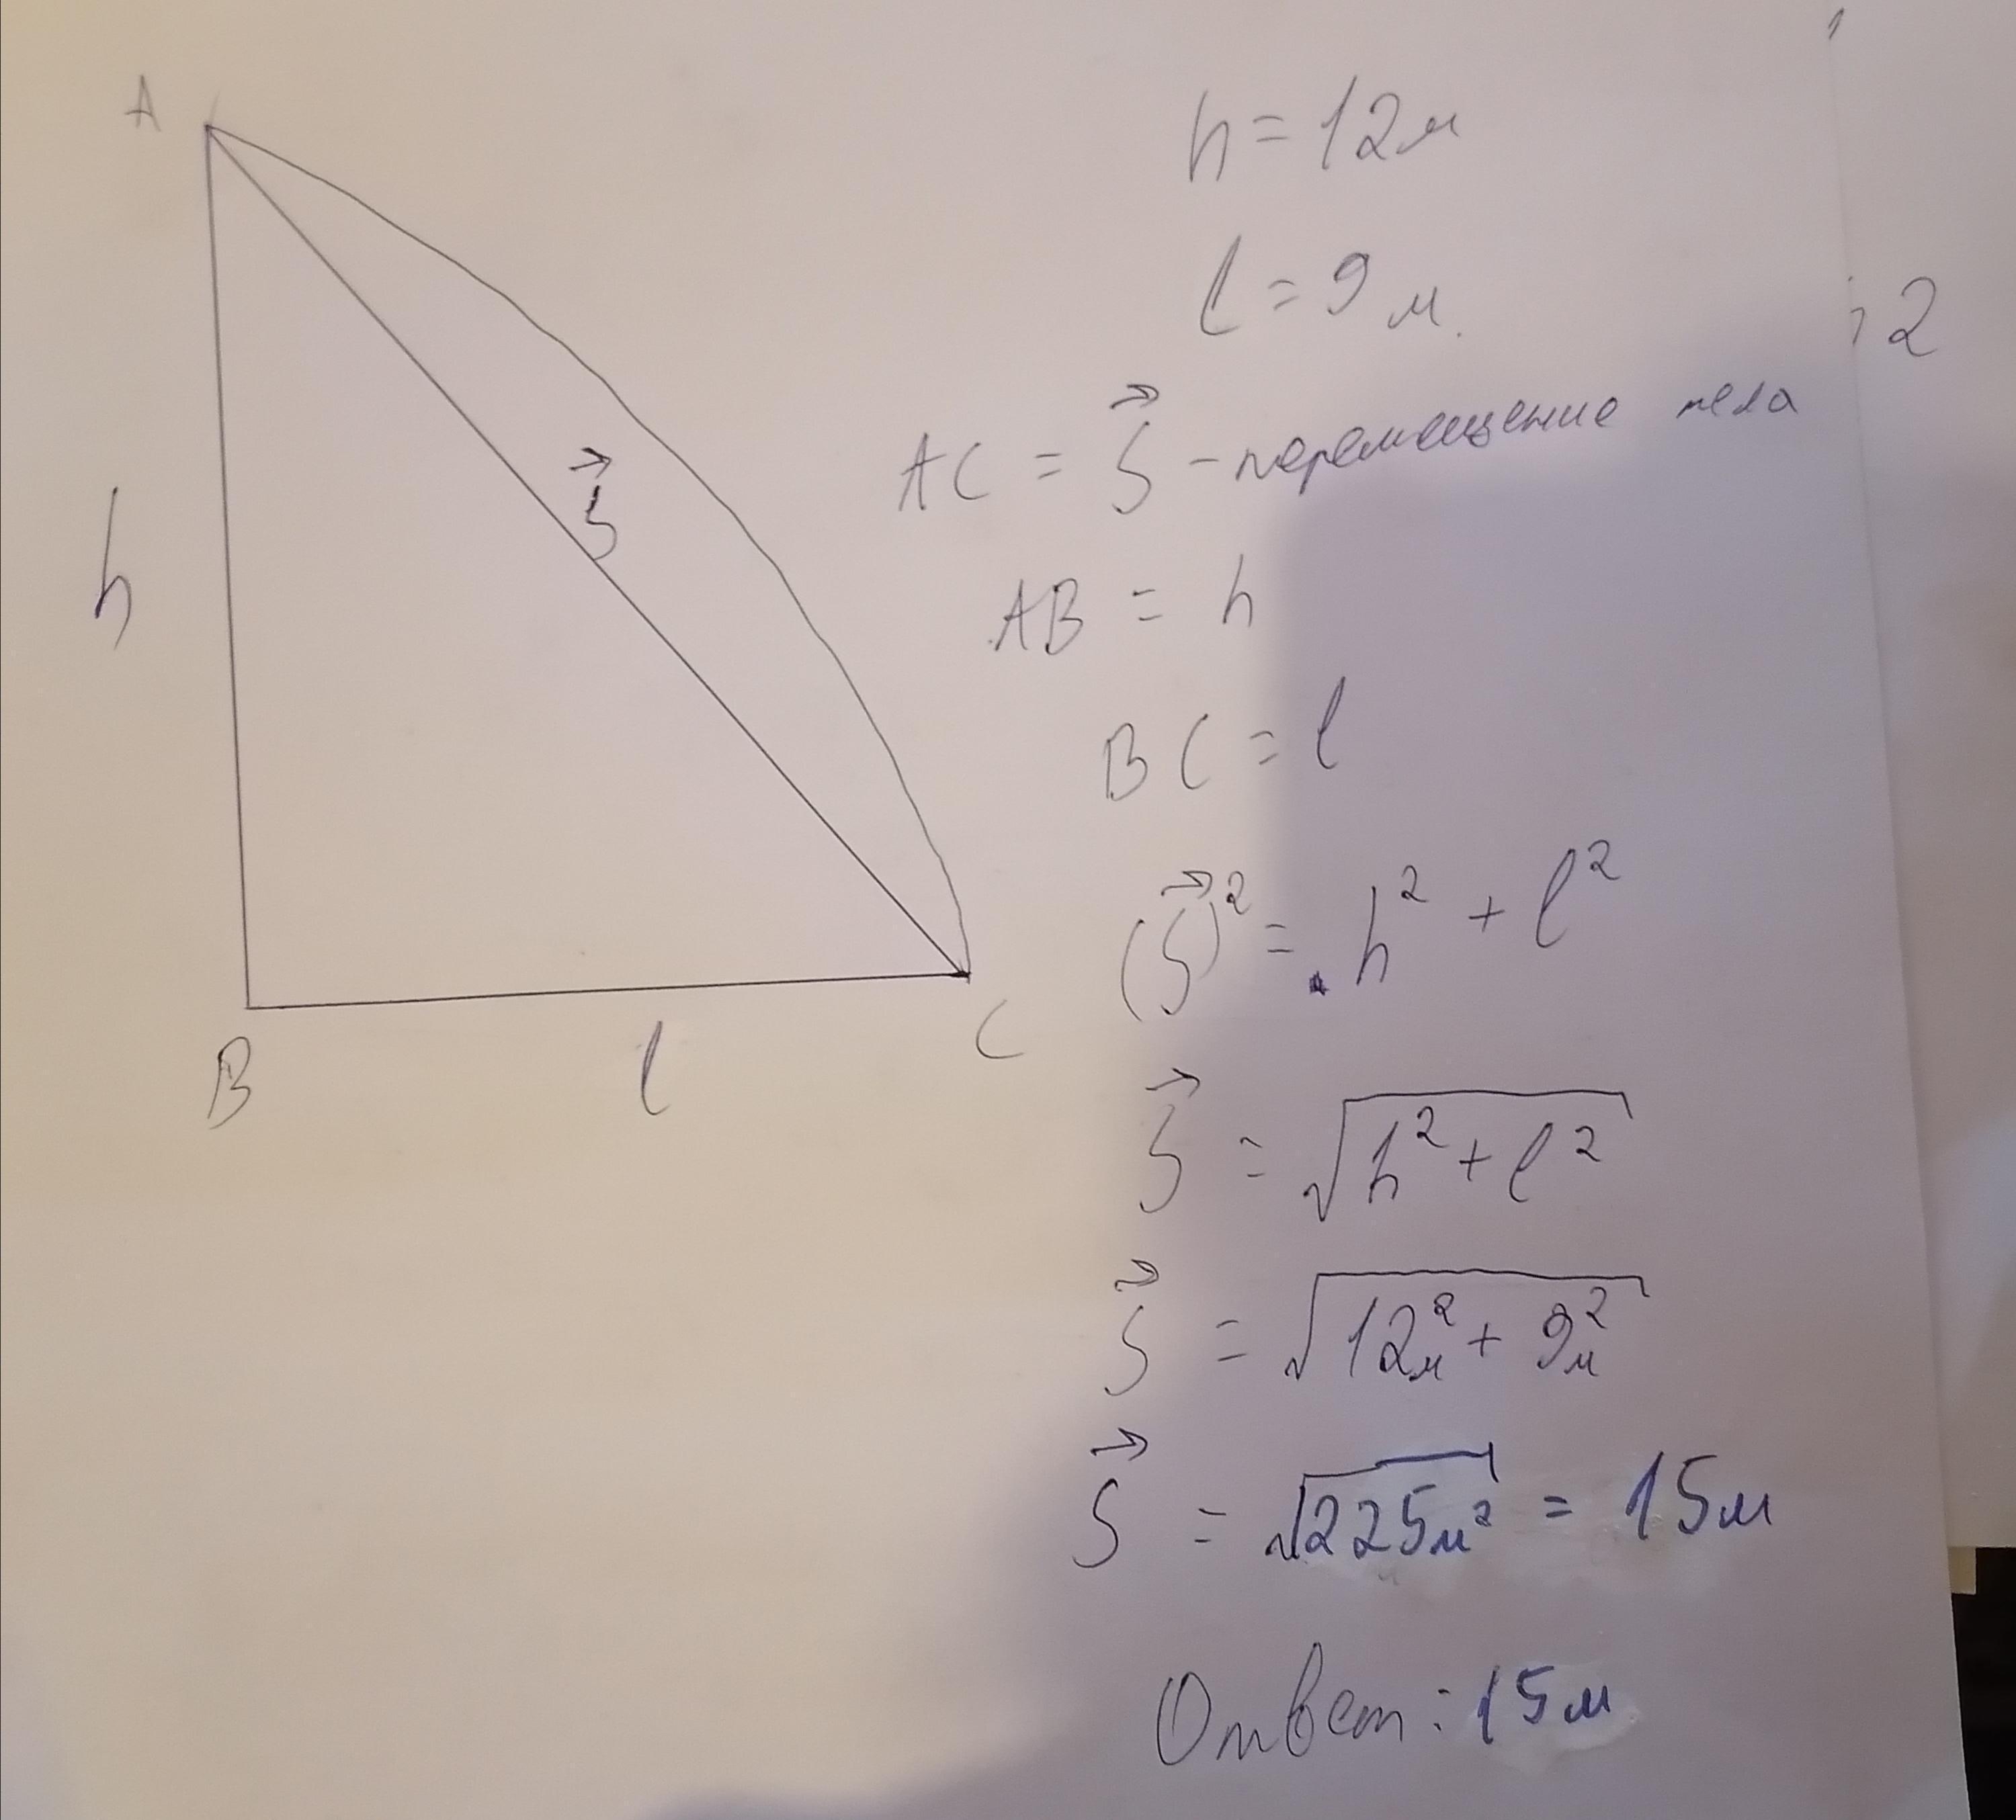 A
h
S⃗
B
l
C
h = 12м
l = 9м.
2
AC = S⃗ - перемещение тела
AB = h
BC = l
(S⃗)² = h² + l²
S⃗ = √h² + l²
S⃗ = √12м² + 9м²
S⃗ = √225м² = 15м
Ответ: 15м